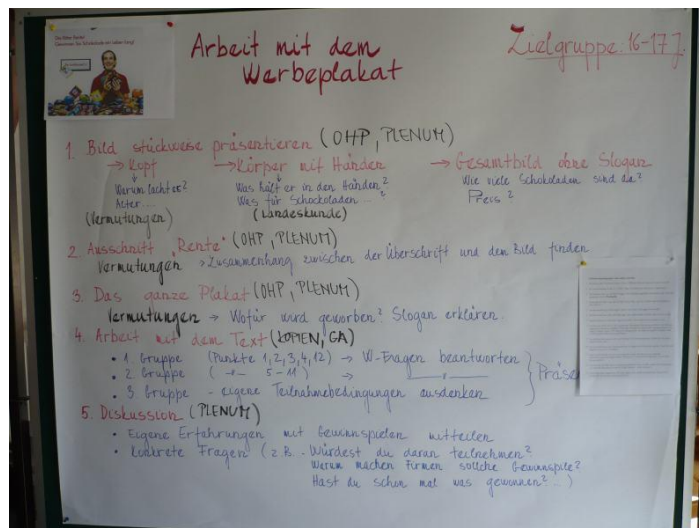 Arbeit mit dem
Werbeplakat
Zielgruppe: 16-17 J.
1. Bild stückweise präsentieren (OHP, PLENUM)
→ Kopf → Körper mit Händen → Gesamtbild ohne Slogan
Warum lacht er? Was hält er in den Händen? Wie viele Schokoladen sind da?
Alter... Was für Schockoladen...? Preis?
(Vermutungen) (Landeskunde)
2. Ausschnitt "Rente" (OHP, PLENUM)
Vermutungen → Zusammenhang zwischen der Überschrift und dem Bild finden
3. Das ganze Plakat (OHP, PLENUM)
Vermutungen → Wofür wird geworben? Slogan erklären.
4. Arbeit mit dem Text (KOPIEN, GA)
• 1. Gruppe (Punkte 1, 2, 3, 4, 12) → W-Fragen beantworten
• 2. Gruppe ( -"- 5-11 ) → -"-
• 3. Gruppe - eigene Teilnahmebedingungen ausdenken
5. Diskussion (PLENUM)
• Eigene Erfahrungen mit Gewinnspielen mitteilen
• Konkrete Fragen (z.B. Würdest du daran teilnehmen?
Warum machen Firmen solche Gewinnspiele?
Hast du schon mal was gewonnen? ...)